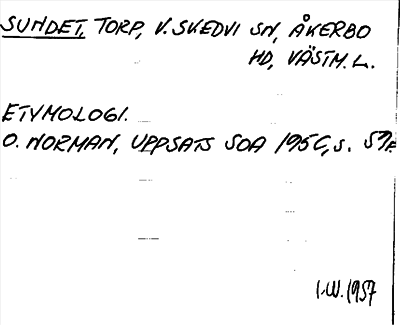 SUNDET, TORP, V. SKEDVI SN, ÅKERBO
HD, VÄSTM. L.
ETYMOLOGI.
O. NORMAN, UPPSATS SOA 1956, s.
I.W. 1957